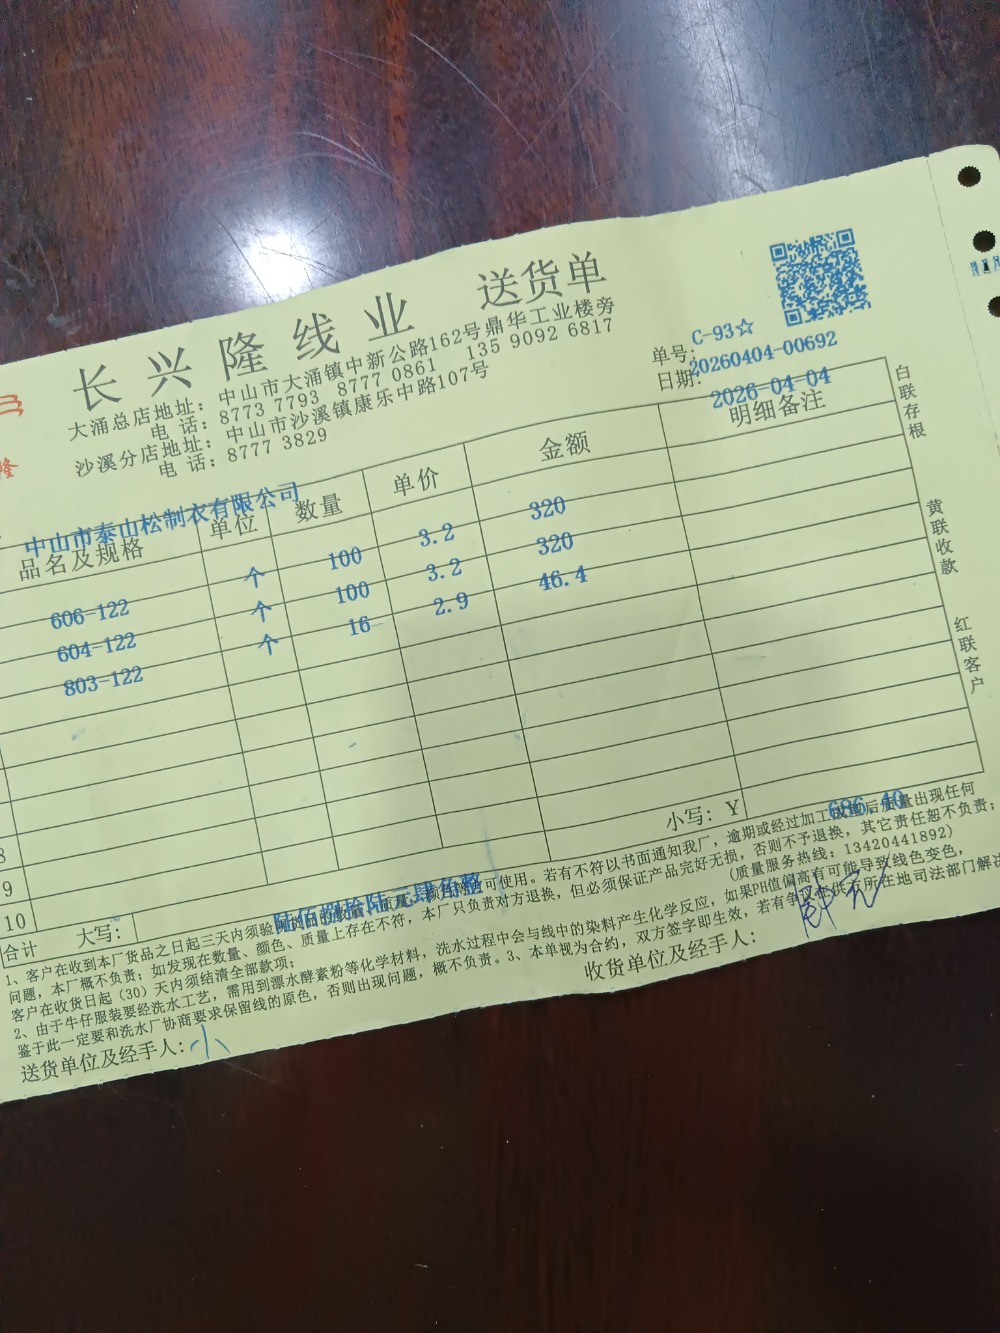 长兴隆线业 送货单
大涌总店地址：中山市大涌镇中新公路162号鼎华工业楼旁
电 话：8773 7793 8777 0861 135 9092 6817
沙溪分店地址：中山市沙溪镇康乐中路107号
电 话：8777 3829
C-93☆
单号：20260404-00692
日期：2026-04-04
中山市泰山松制衣有限公司
品名及规格 单位 数量 单价 金额 明细备注
606-122 个 100 3.2 320
604-122 个 100 3.2 320
803-122 个 16 2.9 46.4
8
9
10
合计 大写：陆佰捌拾陆元肆角整 小写：￥686.40
1、客户在收到本厂货品之日起三天内须验 可使用。若有不符以书面通知我厂，逾期或经过加工 后质量出现任何
问题，本厂概不负责；如发现在数量、颜色、质量上存在不符，本厂只负责对方退换，但必须保证产品完好无损，否则不予退换，其它责任恕不负责；
客户在收货日起（30）天内须结清全部款项； （质量服务热线：13420441892）
2、由于牛仔服装要经洗水工艺，需用到漂水酵素粉等化学材料，洗水过程中会与线中的染料产生化学反应，如果PH值偏高有可能导致线色变色，
鉴于此一定要和洗水厂协商要求保留线的原色，否则出现问题，概不负责。3、本单视为合约，双方签字即生效，若有争议 供方所在地司法部门解决
送货单位及经手人：小 收货单位及经手人：
白联存根
黄联收款
红联客户
隆